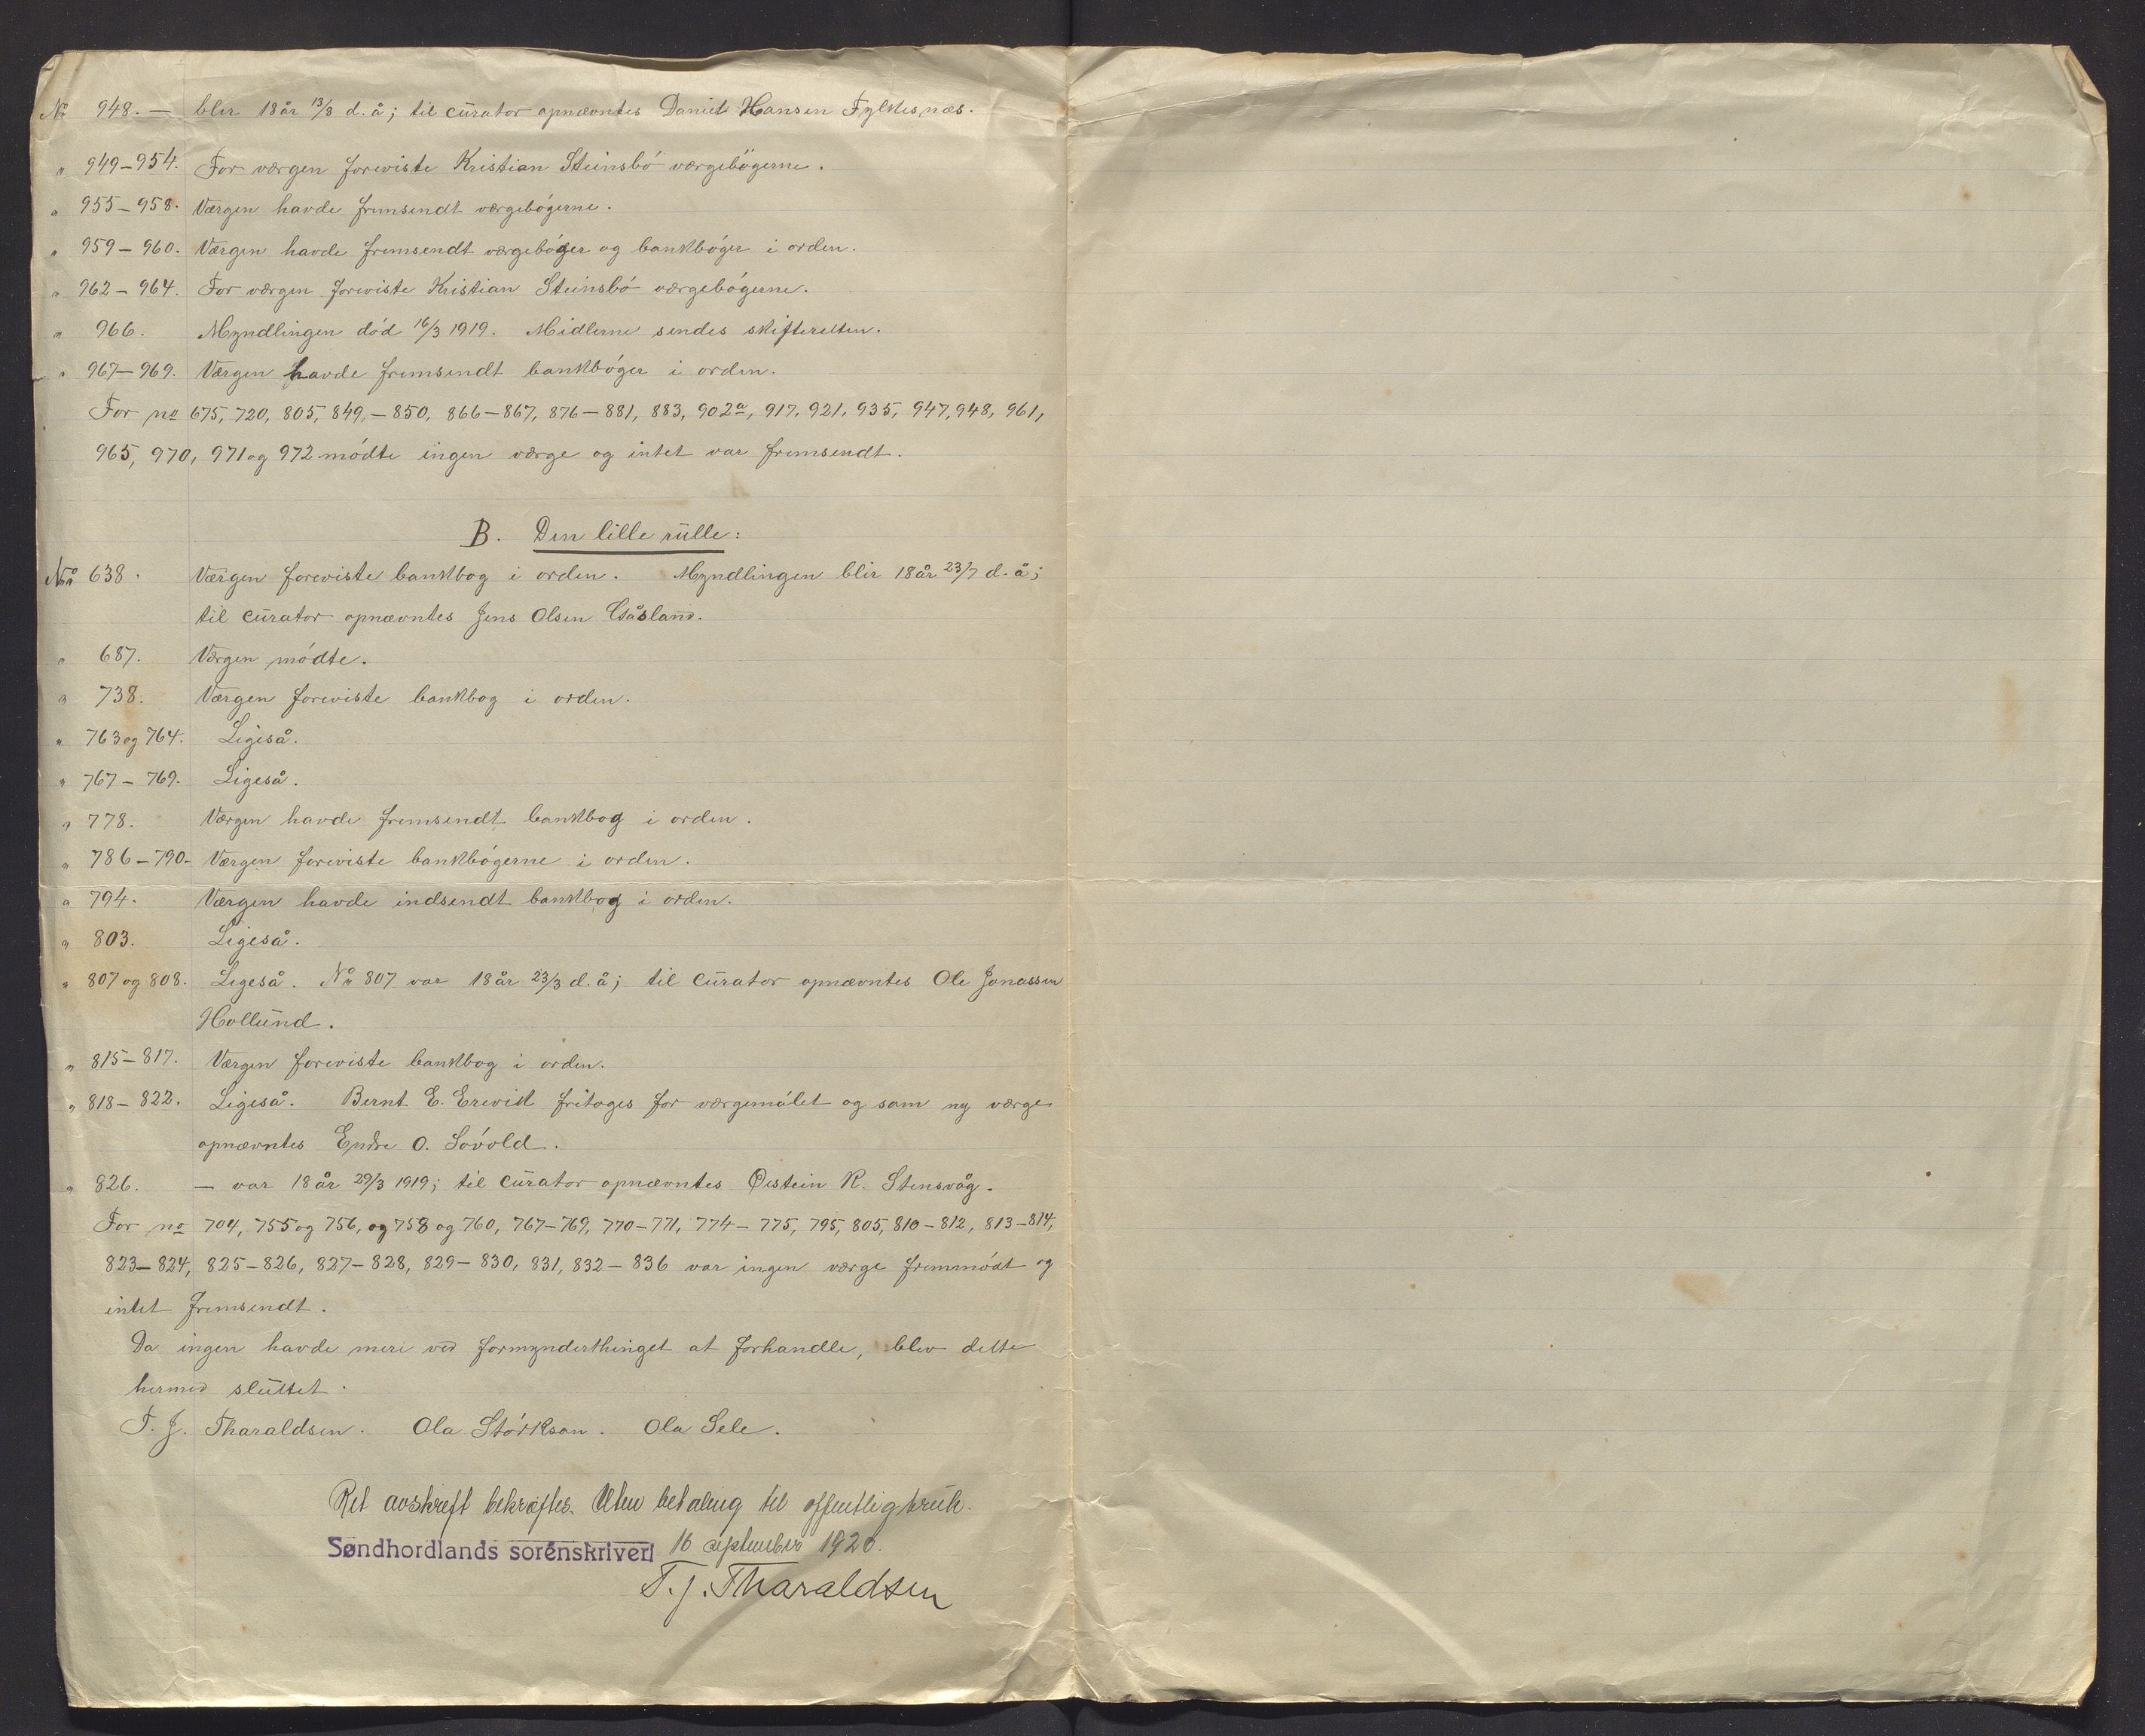 No 948. — blir 18 år 13/8 d. å; til curator opnævntes Daniel Hansen Fylkesnæs.
" 949-954. For værgen foreviste Kristian Steinsbö værgebögerne.
" 955-958. Værgen havde fremsendt værgebögerne.
" 959-960. Værgen havde fremsendt værgebøger og bankböger i orden.
" 962-964. For værgen foreviste Kristian Steinsbö værgebögerne.
" 966. Myndlingen död 16/3 1919. Midlerne sendes skifteretten.
" 967-969. Værgen havde fremsendt bankböger i orden.
For no 675, 720, 805, 849,-850, 866-867, 876-881, 883, 902a, 917, 921, 935, 947, 948, 961,
965, 970, 971 og 972 mödte ingen værge og intet var fremsendt.
B. Den lille rulle:
No 638. Værgen foreviste bankbog i orden. Myndlingen blir 18 år 23/7 d. å;
til curator opnævntes Jens Olsen Gåsland.
" 687. Værgen mödte.
" 738. Værgen foreviste bankbog i orden.
" 763 og 764. Ligeså.
" 767-769. Ligeså.
" 778. Værgen havde fremsendt bankbog i orden.
" 786-790- Værgen foreviste bankbögerne i orden.
" 794. Værgen havde indsendt bankbog i orden.
" 803. Ligeså.
" 807 og 808. Ligeså. No 807 var 18 år 23/3 d. å; til curator opnævntes Ole Jonassen
Hollund.
" 815-817. Værgen foreviste bankbog i orden.
" 818-822. Ligeså. Bernt E. Ersvik fritages for værgemålet og som ny værge
opnævntes Endre O. Lövold.
" 826. — var 18 år 29/3 1919; til curator opnævntes Øistein K. Stensvåg.
For no 704, 755 og 756, og 758 og 760, 767-769, 770-771, 774-775, 795, 805, 810-812, 813-814,
823-824, 825-826, 827-828, 829-830, 831, 832-836 var ingen værge fremmödt og
intet fremsendt.
Da ingen havde mere ved formynderthinget at forhandle, blev dette
hermed sluttet.
T. J. Tharaldsen. Ola Störkson. Ola Sele.
Ret avskrift bekræftes. Uten betaling til offentlig bruk.
Søndhordlands sorenskriveri 16 september 1920.
T. J. Tharaldsen